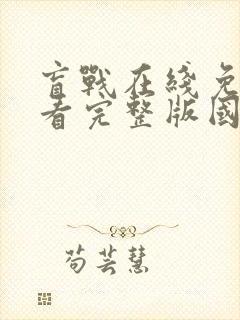 盲戰在綫免
看完整版國
苟芸慧